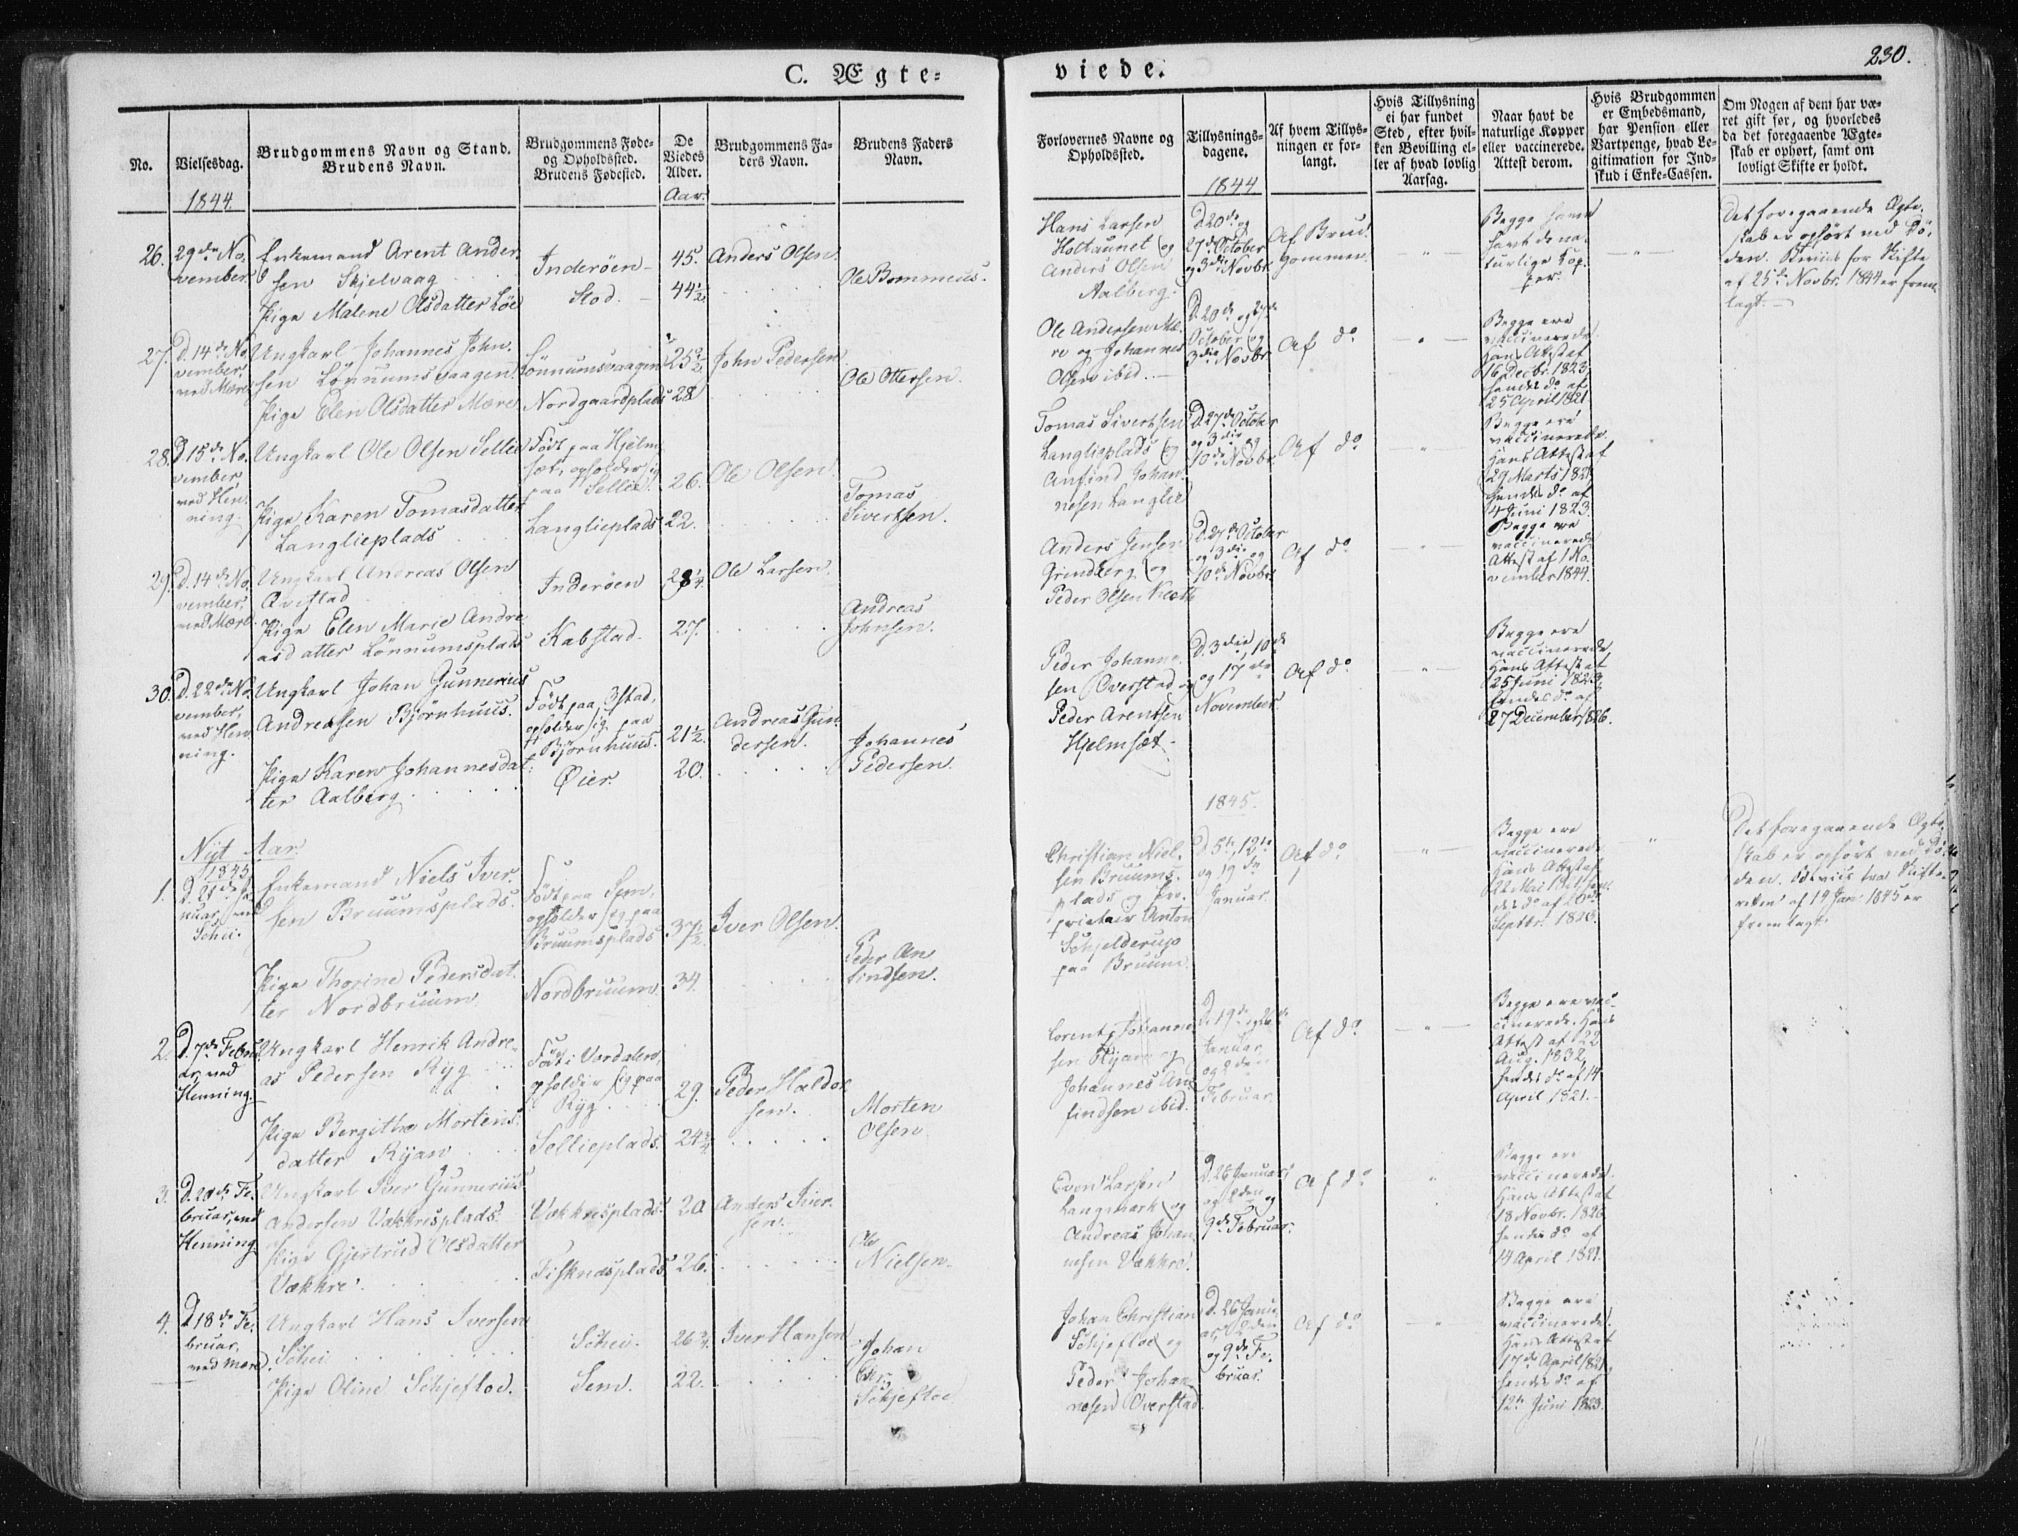 230.
C. Ægte-
viede.
No.
Vielsesdag.
Brudgommens Navn og Stand.
Brudens Navn.
Brudgommens Føde-
og Opholdssted.
Brudens Fødested.
De
Viedes
Alder.
Brudgommens Fa-
ders Navn.
Brudens Faders
Navn.
Forlovernes Navne og
Opholdssted.
Tillysnings-
dagene.
Af hvem Tillys-
ningen er for-
langt.
Hvis Tillysning
ei har fundet
Sted, efter hvil-
ken Bevilling el-
ler af hvad lovlig
Aarsag.
Naar havt de
naturlige Kopper
eller vaccinerede.
Attest derom.
Hvis Brudgommen
er Embedsmand,
har Pension eller
Vartpenge, hvad Le-
gitimation for Ind-
skud i Enke-Cassen.
Om Nogen af dem har væ-
ret gift før, og hvorledes
da det foregaaende Ægte-
skab er ophørt, samt om
lovligt Skifte er holdt.
1844
Aar.
1844
26.
29de No-
vember
Enkemand Arent Ander-
sen Skjelvaag
Pige Malene Olsdatter Løe
Inderøen
Stod.
45.
44½
Anders Olsen
Ole Bommeus.
Hans Larsen
Holtaunet og
Anders Olsen
Aalberg.
D. 20de og
27de October
og 3die Novbr.
Af Brud-
gommen
Begge have
havt de na-
turlige Kop-
per.
Det foregaaende Ægte-
skab er ophørt ved Dø-
den. Beviis for Skifte
af 25de Novbr. 1844 er frem-
lagt.
27.
D. 14de No-
vember,
ved Mære
Ungkarl Johannes John-
sen Lønnumsvaagen.
Pige Elen Olsdatter Mære
Lønnumsvaagen
Nordgaardplads
25½
28
John Pedersen
Ole Ottersen.
Ole Andersen Mæ-
re og Johannes
Olsen ibid.
D. 20de og 27de
October og
3die Novbr.
Af do
Begge ere
vaccinerede.
Hans Attest af
16 Decbr. 1823
hendes do af
25 April 1821
28.
D. 15de No-
vember,
ved Hen-
ning.
Ungkarl Ole Olsen Sellie
Pige Karen Tomasdatter
Langlieplads
Født paa Hjelm-
sæt, opholder sig
paa Sellie.
Langlieplads
26.
22.
Ole Olsen.
Tomas
Sivertsen.
Tomas Sivertsen
Langlieplads og
Anfind Johan-
nesen Langlie
D. 27de October
og 3die og
10de Novbr.
Af do
Begge ere
vaccinerede.
Hans Attest af
29 Marts 1821
hendes do af
4 Juni 1823.
29.
D. 14de No-
vember,
ved Mære.
Ungkarl Andreas Olsen
Pige Elen Marie Andre-
asdatter Lønnumsplads
Inderøen
Kabstad.
28¼
27.
Ole Larsen.
Andreas
Johnsen.
Anders Jensen
Grindberg og
Peder Olsen
D. 27de October
og 3die og
10de Novbr.
Af do
Begge ere
vaccinerede
Attest af 1 No-
vember 1844.
30.
D. 22de No-
vember,
ved Hen-
ning.
Ungkarl Johan Gunnerius
Andreasen Bjørnhuus.
Pige Karen Johannesdat-
ter Aalberg
Født paa Ystad,
opholder sig paa
Bjørnhuus.
Øier.
21½
20.
Andreas Gun-
dersen.
Johannes
Pedersen.
Peder Johanne-
sen Overstad og
Peder Arentsen
Hjelmsæt.
D. 3die, 10de
og 17de
November
Af do
Begge ere
vaccinerede,
Hans Attest af
25 Juni 1823
hendes do af
27 December 1826.
Nyt Aar
1845
1845.
1.
D. 21de Ja-
nuar, ved
Schei.
Enkemand Niels Iver-
sen Bruumsplads.
Pige Thorine Pedersdat-
ter Nordbruum
Født paa Sem,
opholder sig paa
Bruumsplads
Nordbruum
37½
34.
Iver Olsen.
Peder An-
findsen.
Christian Niel-
sen Bruums-
plads og Pro-
prietair Anton
Schjelderup
paa Bruum.
D. 5te, 12te
og 19de
Januar.
Af do
Begge ere
vaccinerede
Hans Attest af
22 Mai 1821 hen-
des do af
Septbr. 1823.
Det foregaaende Ægte-
skab er ophørt ved Dø-
den. Beviis fra Skifte-
retten af 14 Jan: 1845 er
fremlagt.
2.
D. 7de Febru-
ar, ved
Henning.
Ungkarl Henrik Andre-
as Pedersen Ryg
Pige Bergitha Mortens-
datter Ryan
Født i Værdalen,
opholder sig paa
Ryg
Sellieplads.
29.
24¾
Peder Haldor-
sen.
Morten
Olsen
Lorents Johanne-
sen Ryan og
Johannes An-
findsen ibid.
D. 19de og 26de
Januar
og 2den
Februar.
Af do
Begge ere vac-
cinerede. Hans
Attest af 22
Aug. 1832,
hendes do af 14
April 1821.
3.
D. 20de Fe-
bruar, ved
Henning
Ungkarl Iver Gunnerius
Andersen Vækkresplads.
Pige Gjertrud Olsdatter
Vækkre.
Vækkresplads.
Fisknesplads
20
26.
Anders Iver-
sen.
Ole
Nielsen.
Even Larsen
Langmark og
Andreas Johan-
nesen Vækkre.
D. 26 Januar,
og 2den og
9de Februar.
Af do
Begge ere
vaccinerede.
Hans Attest af
18 Novbr. 1826
hendes do af
14 April 1821.
4.
D. 18de Fe-
bruar,
ved Mære.
Ungkarl Hans Iversen
Schei
Pige Oline Schjefloe.
Schei.
Sem.
26¾
22.
Iver Hansen
Johan
Chr.
Schjefloe
Johan Christian
Schjefloe og
Peder Johan-
nesen Overstad.
D. 26 Janu-
ar, 2den
og 9de Fe-
bruar.
Af do
Begge ere
vaccinerede.
Hans Attest af
17de April 1821
hendes do af
12te Juni 1823.